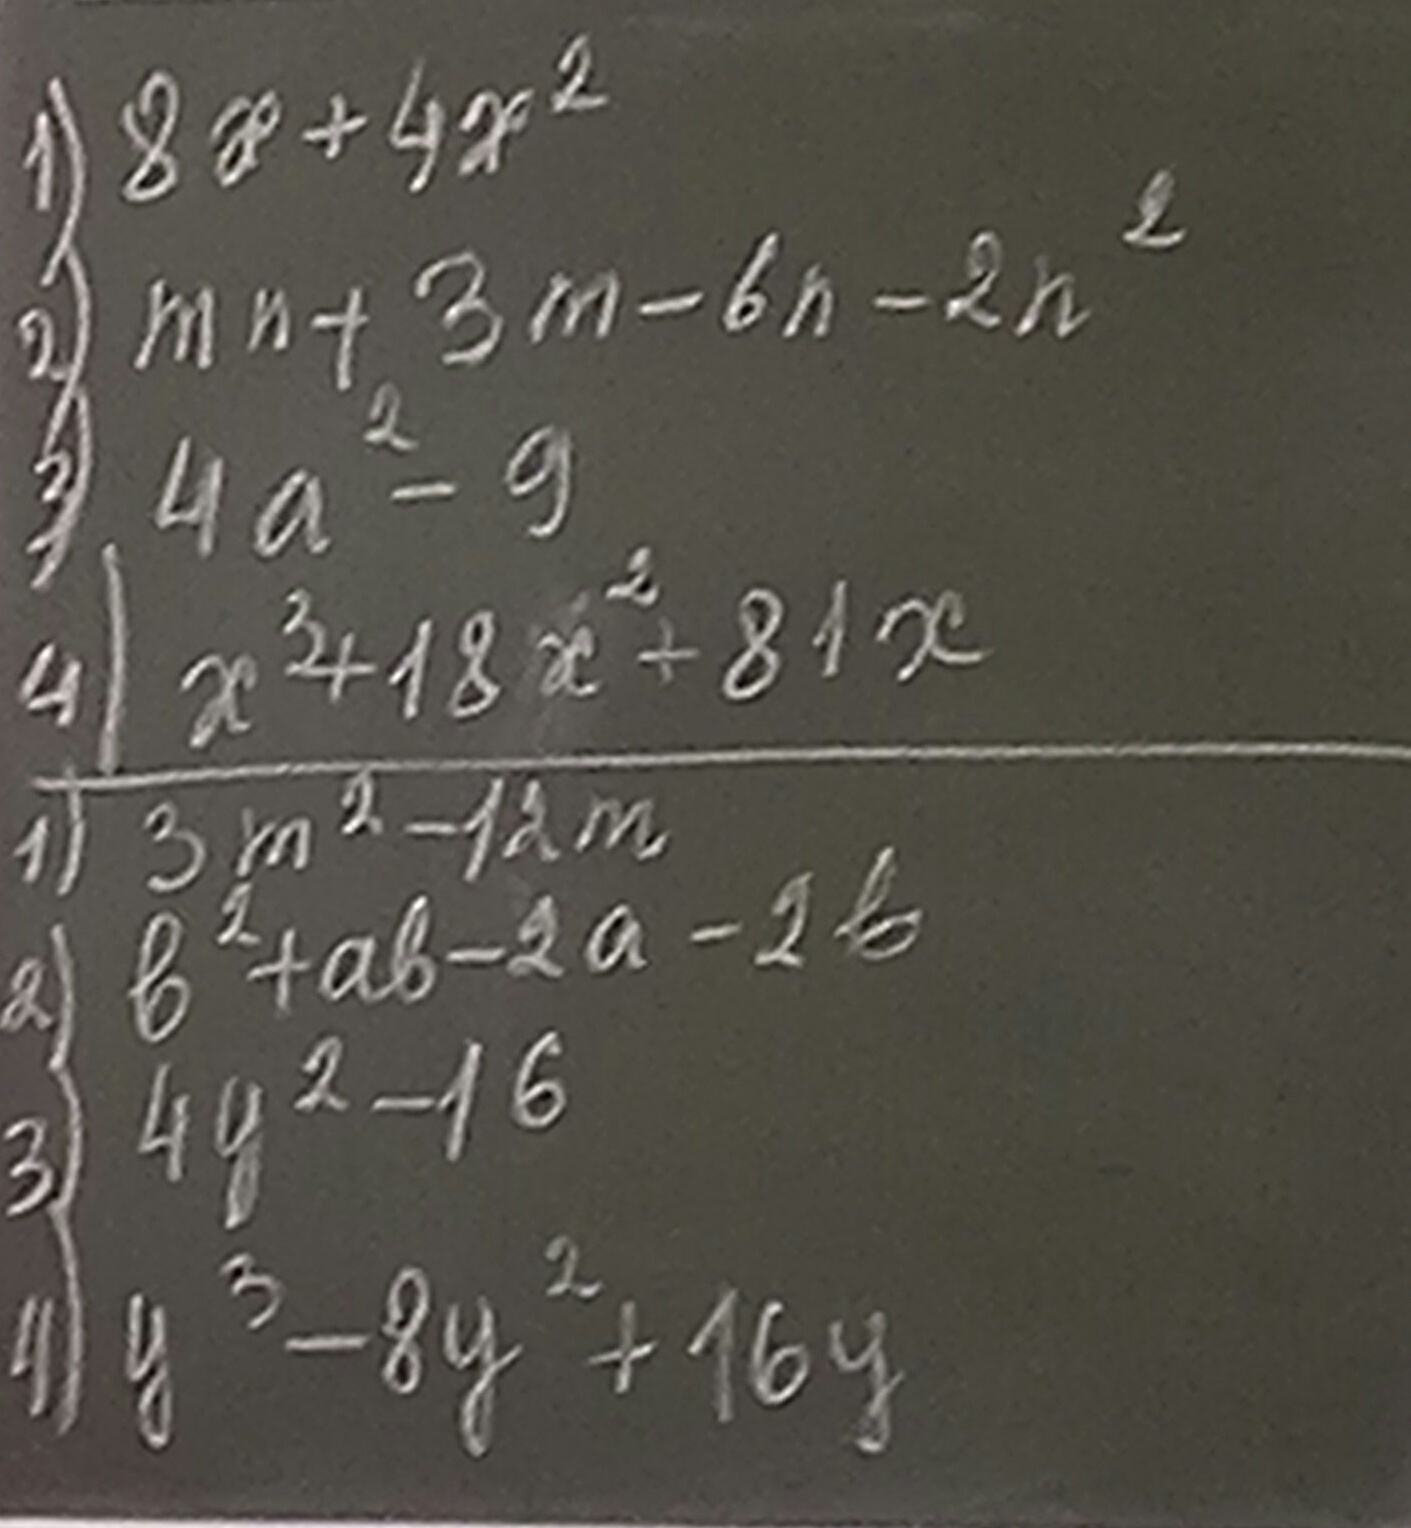 1) 8x+4x²
2) mn+3m-6n-2n²
3) 4a²-9
4) x³+18x²+81x
1) 3m²-12m
2) b²+ab-2a-2b
3) 4y²-16
4) y³-8y²+16y